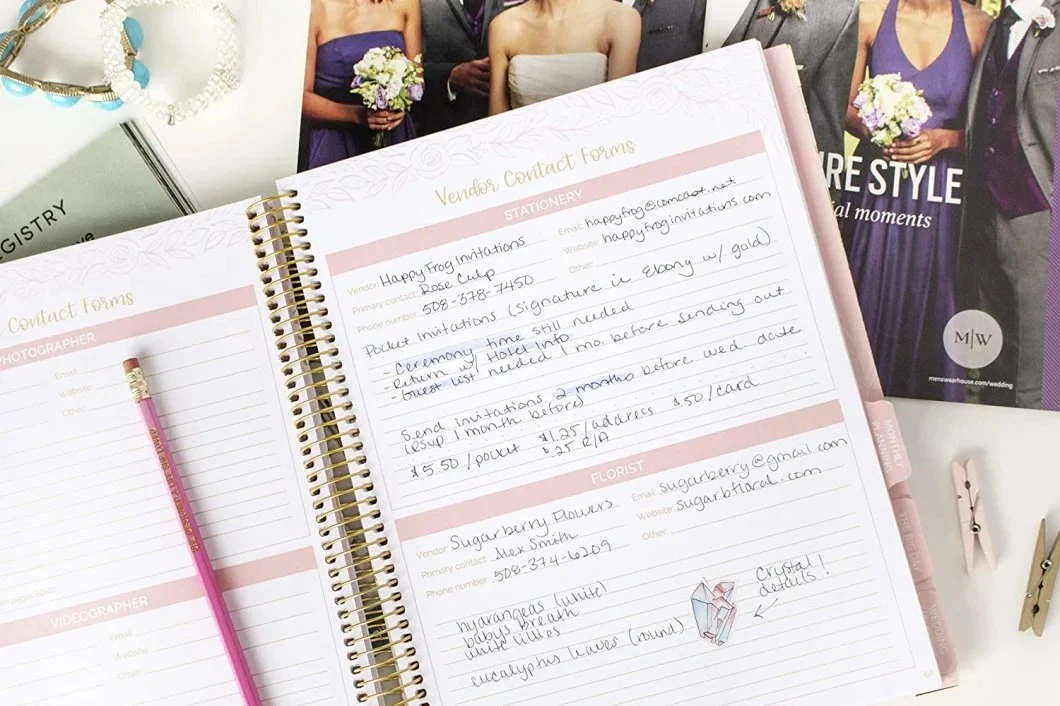 EGISTRY
Contact Forms
PHOTOGRAPHER
Email:
Website:
Other:
VIDEOGRAPHER
Email:
Website:
Other:
Vendor Contact Forms
STATIONERY
Vendor: Happy Frog Invitations
Email: happyfrog@comcast.net
Primary contact: Rose Culp
Website: happyfroginvitations.com
Phone number: 508-378-7450
Other:
Pocket Invitations (Signature in Ebony w/ gold)
- Ceremony time still needed
- Return w/ Hotel Info
- Guest list needed 1 mo. before sending out
Send invitations 2 months before wed. date
(RSVP 1 month before)
$5.50/pocket $1.25/address $.50/card
$.25 R/A
FLORIST
Vendor: Sugarberry Flowers
Email: sugarberry@gmail.com
Primary contact: Alex Smith
Website: sugarbfloral.com
Phone number: 508-374-6209
Other:
hyrangeas (white)
babys breath
white lilies
eucalyptus leaves (round)
Crystal
details!
67
RE STYLE
ial moments
M|W
menswearhouse.com/wedding
MONTHLY
PLANNING
THE BIG DAY
WEDDING